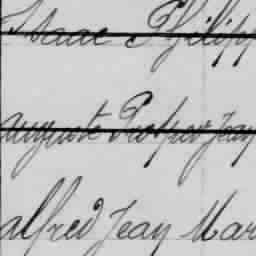 Isaac Philipp
auguste Prosper Jean
alfred Jean Mar